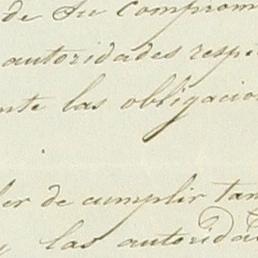 de su comprom
autoridades respe
nte las obligacion
der de cumplir tam
y las autorida